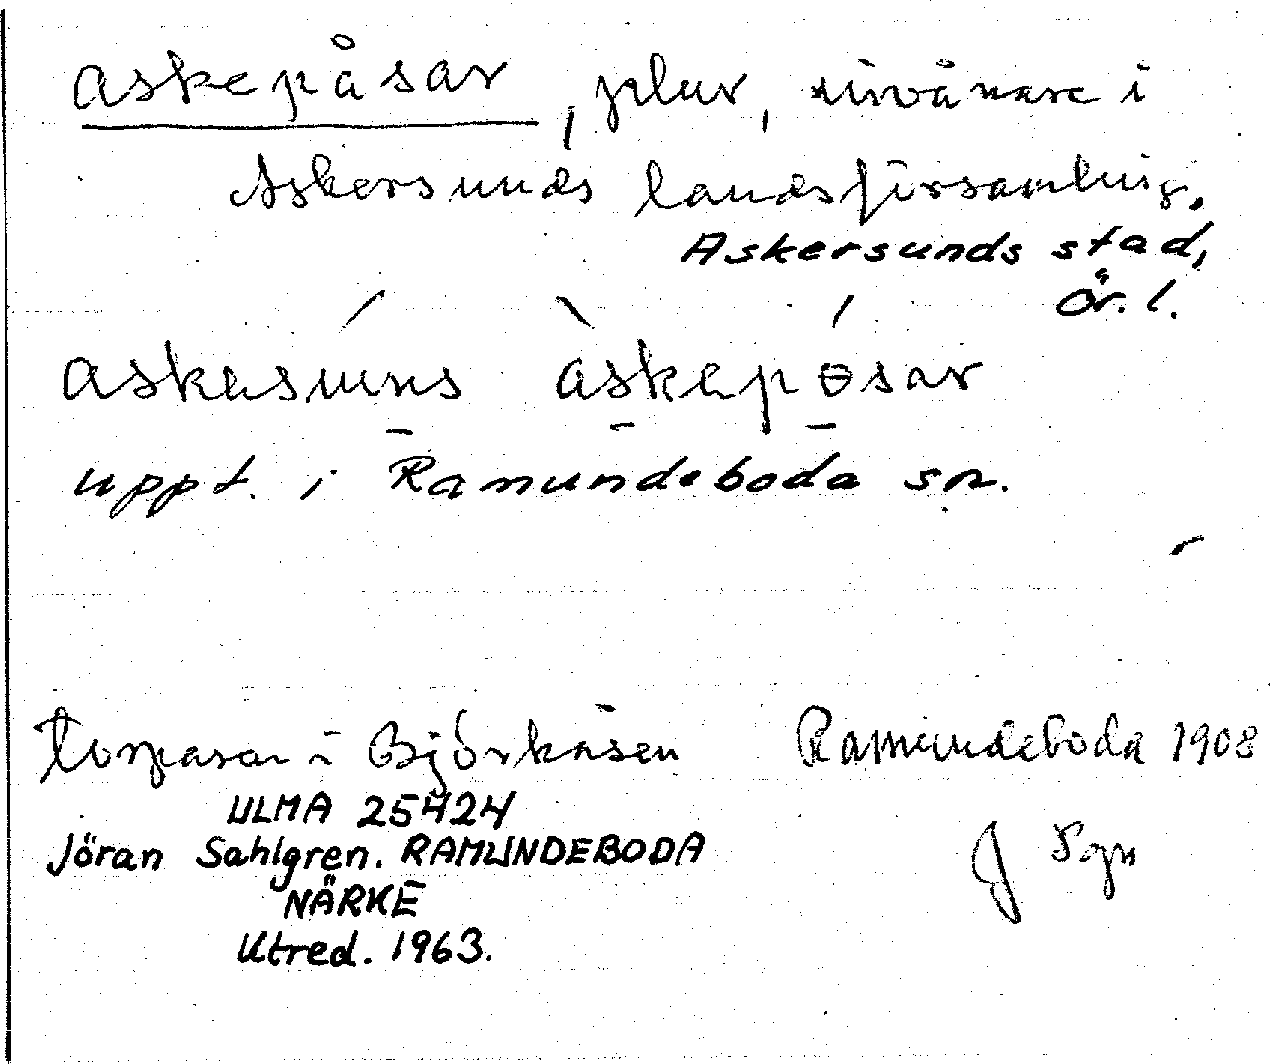 askepåsar, plur, invånare i
Askersunds landsförsamling.
Askersunds stad,
Ör. l.
askasuns àskapɵsar
uppt. i Ramundeboda sn.
i Björkåsen Ramundeboda 1908
ULMA 25424
Jöran Sahlgren. RAMUNDEBODA J Sgn
NÄRKE
Utred. 1963.